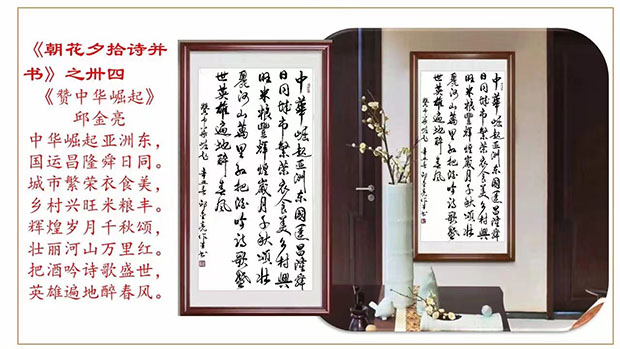 《朝花夕拾诗并
书》之卅四
《赞中华崛起》
邱金亮
中华崛起亚洲东，
国运昌隆舜日同。
城市繁荣衣食美，
乡村兴旺米粮丰。
辉煌岁月千秋颂，
壮丽河山万里红。
把酒吟诗歌盛世，
英雄遍地醉春风。
中華崛起亚洲东国運昌隆舜
日同城市繁荣衣食美乡村興
旺米粮豐辉煌歲月千秋頌壮
麗河山萬里红把酒吟诗歌盛
世英雄遍地醉春风
赞中华崛起 辛丑 邱金亮作并书
中華崛起亚洲东国運昌隆舜
日同城市繁荣衣食美乡村興
旺米粮豐辉煌歲月千秋頌壮
麗河山萬里红把酒吟诗歌盛
世英雄遍地醉春风